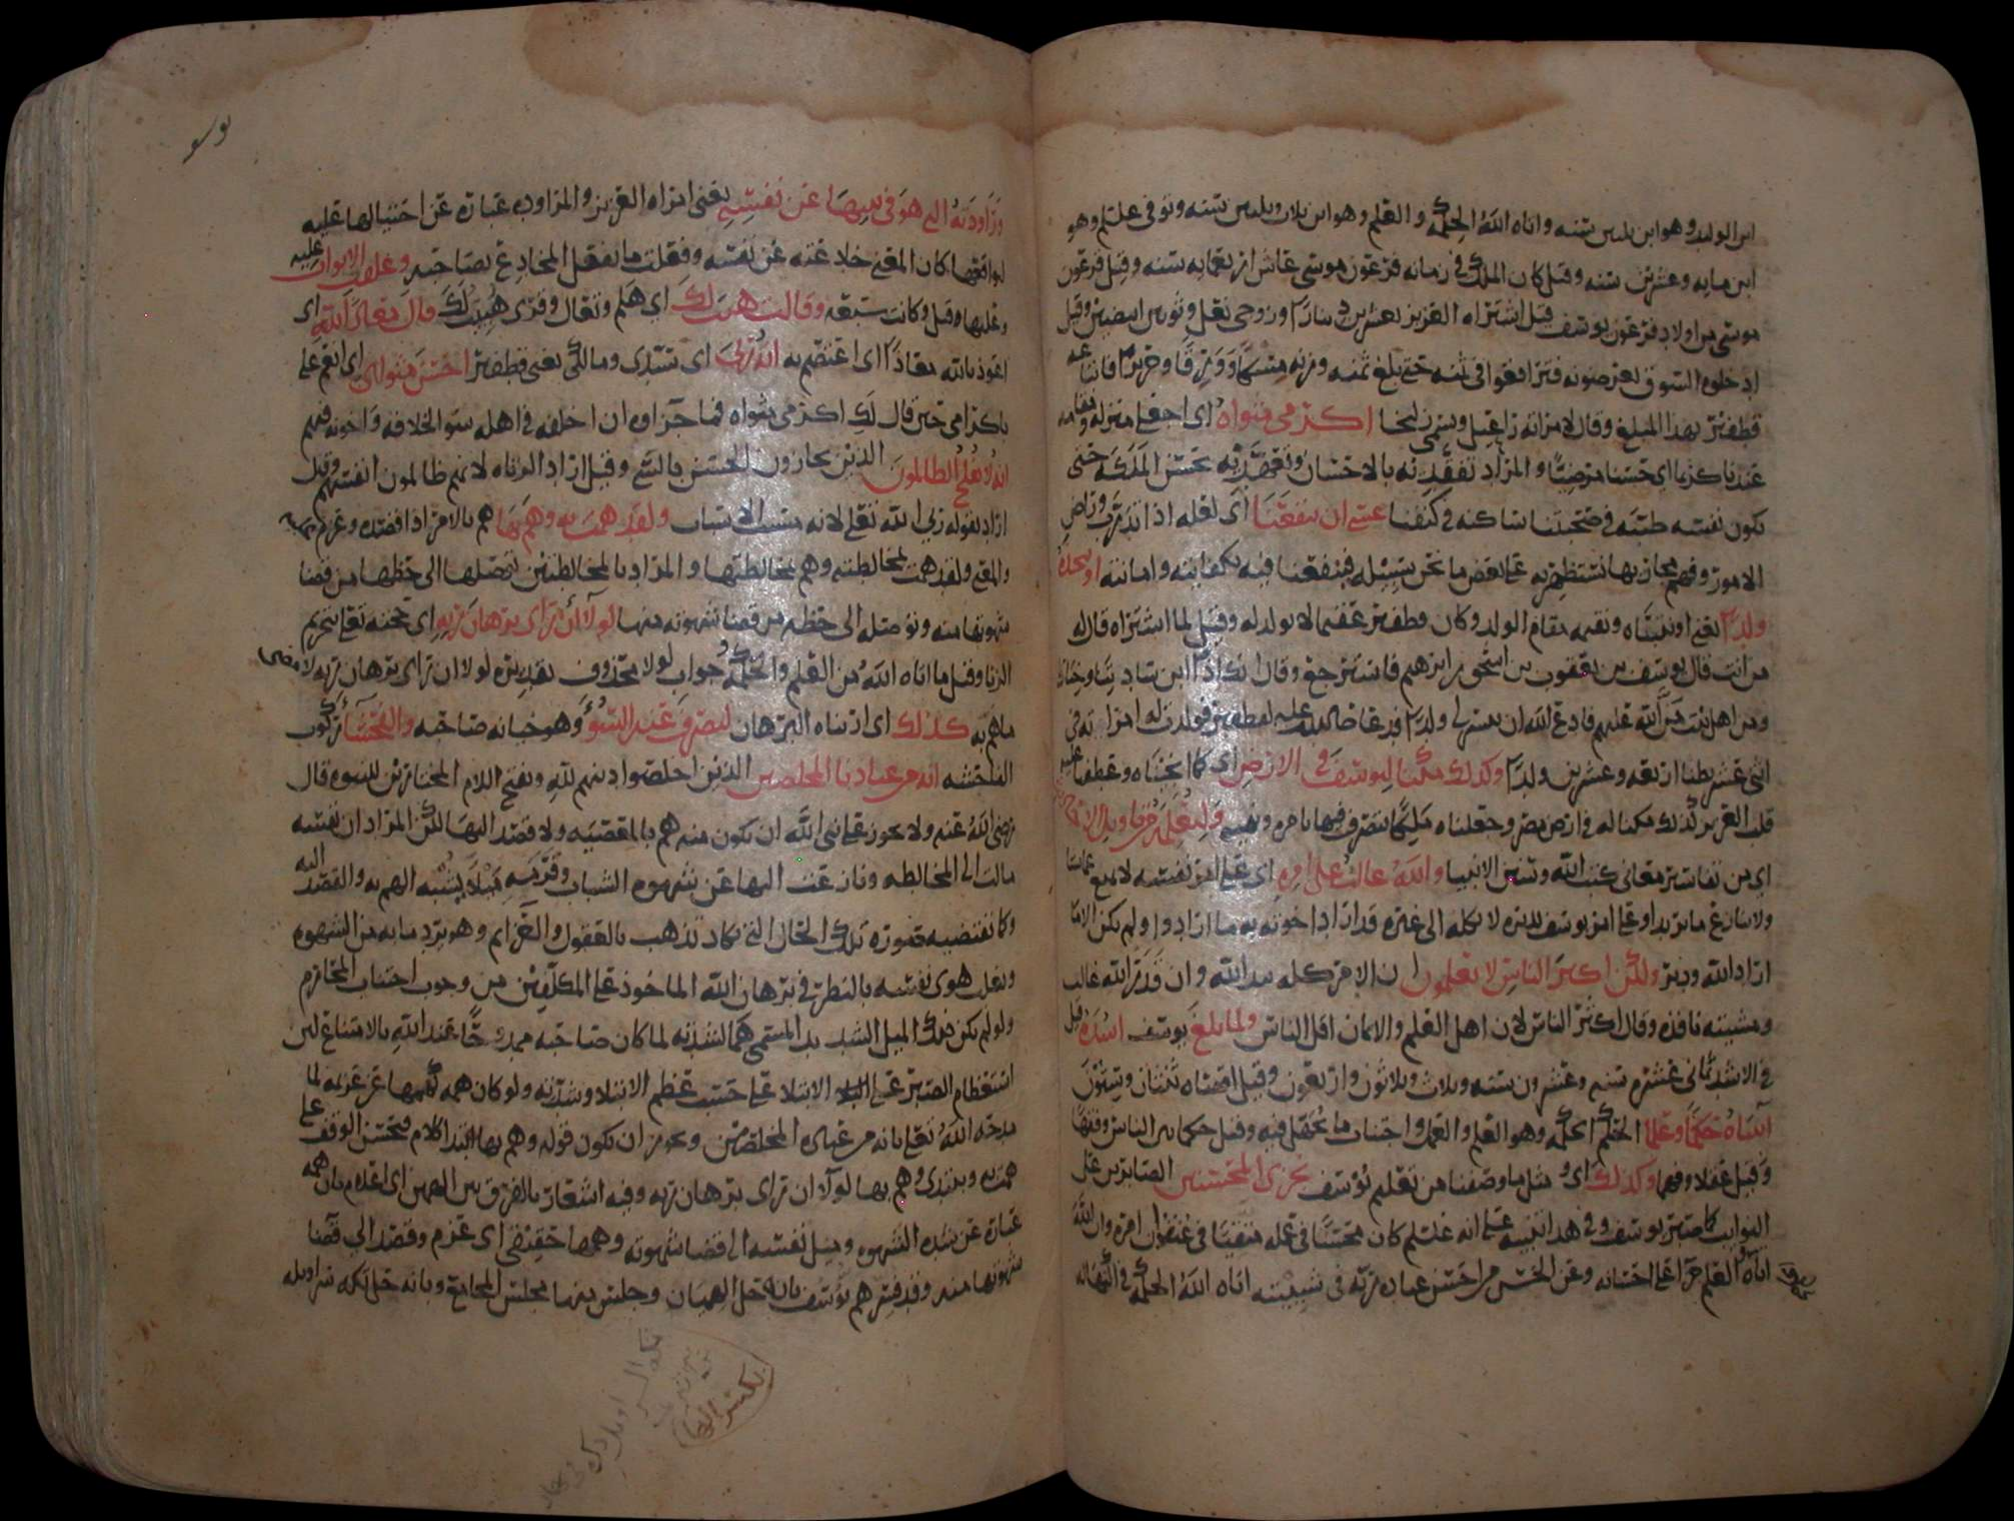 ابن الوليد وهو ابن ثلثين سنه واتاه الله الحكمة والعلم وهو ابن ثلاث وثلثين سنه وتوفى عليلم وهو
ابن مايه وعشرين سنه وقيل كان الملك في زمانه فرعون موسى عاش اربعمايه سنه وقيل فرعون
موسى من اولاد فرعون يوسف قيل اشتراه العزيز بعشرين دينارا وزوجى نعل وثوبين ابيضين وقيل
ادخلوه السوق يعرضونه فترافعوا في ثمنه حتى بلغ ثمنه وزنه مسكا وورقا وحريرا فابتاعه
قطفير بهذا المبلغ وقال لامراته راعيل وسمى زليخا اكرمى مثواه اى اجعلى منزله ومقامه
عندنا كريما اى حسنا مرضيا والمراد تفقديه بالاحسان وتعهديه بحسن الملكة حتى
تكون نفسه طيبه في صحبتنا ساكنه في كنفنا عسى ان ينفعنا اى لعله اذا تدرب وراض
الامور وفهم مجاريها نستظهر به على بعض ما نحن بسبيله فينفعنا فيه بكفايته وامانته او نتخذه
ولدا يعنى او نتبناه ونقيمه مقام الولد وكان قطفير عقيما لا يولد له وقيل لما اشتراه قال له
من انت قال يوسف بن يعقوب بن اسحق بن ابرهيم فاسترجع وقال
ولدا فدعا فولدت له امراته في
اثنى عشر بطنا اربعه وعشرين ولدا وكذلك مكنا ليوسف في الارض اى كما انجيناه وعطفنا عليه
قلب العزيز كذلك مكنا له في ارض مصر وجعلناه ملكا يتصرف فيها بامره ونهيه ولنعلمه من تاويل الاحاديث
اى من تفاسير معانى كتب الله وسنن الانبيا والله غالب على امره اى على امر نفسه لا يمنع عما يشا
ولا ينازع ما يريد او على امر يوسف يدبره لا يكله الى غيره قد اراد اخوته به ما ارادوا ولم يكن الا ما
اراد الله ودبر ولكن اكثر الناس لا يعلمون ان الامر كله بيد الله وان قدر الله غالب
ومشيته نافذه وقال اكثر الناس لان اهل العلم والايمان اقل الناس ولما بلغ يوسف اشده قيل
في الاشد ثمانى عشره سنه وعشرون سنه وثلاث وثلاثون واربعون وقيل اقصاه ثنتان وستون
آتيناه حكما وعلما الحكم الحكمة وهو العلم والعمل واجتناب ما يجهل فيه وقيل حكما بين الناس وفقها
وقيل عقلا وفهما وكذلك اى ومثل ما وصفنا من تعليم يوسف نجزى المحسنين الصابرين على
النوايب كما صبر يوسف وفي هذا تنبيه على انه عليلم كان محسنا في عمله متقيا في عنفوان امره وان الله
اتاه العلم جزا على احسانه وعن الحسن من احسن عباده ربه في شبيبته اتاه الله الحكمة في اكتهاله
وراودته التى هو في بيتها عن نفسه يعنى امراه العزيز والمراوده عبارة عن احتيالها عليه
ليواقعها كان المعنى خادعته عن نفسه وفعلت ما يفعل المخادع بصاحبه وغلقت الابواب عليه
وعليها وقيل وكانت سبعة وقالت هيت لك اى هلم وتعال وقرى هيت لك قال معاذ الله اى
اعوذ بالله معاذا اى اعتصم به انه ربى اى سيدى ومالكى يعنى قطفير احسن مثواى اى انعم على
باكرامى حين قال لك اكرمى مثواه فما جزاوه ان اخلفه في اهله سو الخلافه واخونه فيهم
انه لا يفلح الظالمون الذين يجازون الحسن بالسى وقيل اراد الزناه لانهم ظالمون انفسهم وقيل
اراد بقوله ربى الله تعلى لانه مسبب الاسباب ولقد همت به وهم بها هم بالامر اذا قصده وعزم عليه
والمعنى ولقد همت بمخالطته وهم بمخالطتها والمراد بالمخالطتين توصلها الى حظها من قضا
شهوتها منه وتوصله الى حظه من قضا شهوته منها لولا ان راى برهان ربه اى محبته تعلى تحريم
الزنا وقيل ما اتاه الله من العلم والحكمة وجواب لولا محذوف تقديره لولا ان راى برهان ربه لامضى
ما هم به كذلك اى اريناه البرهان لنصرف عنه السوء وهو خيانه صاحبه والفحشا ركوب
الفاحشه انه من عبادنا المخلصين الذين اخلصوا دينهم لله وبفتح اللام المختارين للنبوه قال
رضى الله عنه ولا يجوز على نبى الله ان يكون منه هم بالمعصيه ولا قصد اليها لكن المراد ان نفسه
مالت الى المخالطه ونازعت اليها عن شهوه الشباب وقرمه ميلا يشبه الهم به والقصد اليه
وكما تقتضيه صوره تلك الحال التى تكاد تذهب بالعقول والعزايم وهو يرد ما به من الشهوه
ويغلب هوى نفسه بالنظر في برهان الله الماخوذ على المكلفين من وجوب اجتناب المحارم
ولو لم يكن ذلك الميل الشديد المسمى هما لشدته لما كان صاحبه ممدوحا عند الله بالامتناع لان
استعظام الصبر على الابتلا على حسب عظم الابتلا وشدته ولو كان همه كهمها عن عزيمه لما
مدحه الله تعلى بانه من عباده المخلصين ويجوز ان يكون قوله وهم بها ابتدا كلام فيحسن الوقف على
همت به ويبتدى وهم بها لولا ان راى برهان ربه وفيه اشعار بالفرق بين الهمين اى اعلام بان همه
عبارة عن شده الشهوه وميل نفسه الى قضا شهوته وهمها حقيقى اى عزم وقصد الى قضا
شهوتها منه وقد فسر هم يوسف بانه حل الهميان وجلس منها مجلس المجامع وبانه حل تكه سراويله